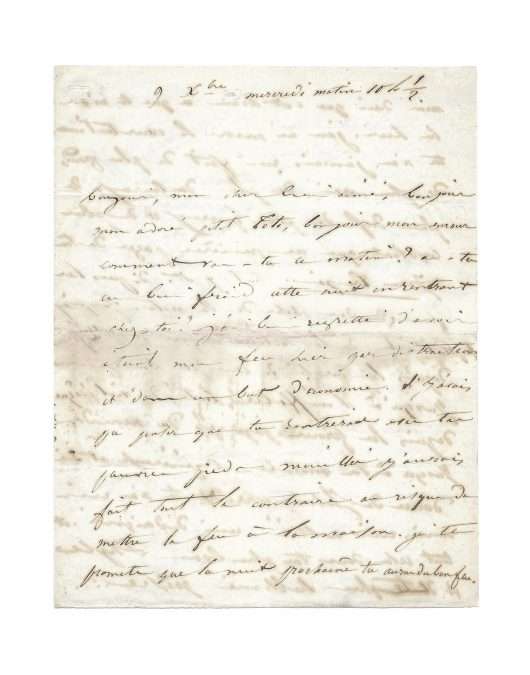 9 Xbre mercredi matin 10 h ½
bonjour, mon cher bien aimé, bonjour
mon adoré petit Toto, bonjour mon amour
comment vas-tu ce matin? as-tu
eu bien froid cette nuit en rentrant
chez-toi? j'ai bien regretté d'avoir
éteint mon feu hier par distraction
et dans un but d'économie. Si j'avais
pu penser que tu rentrerais avec tes
pauvres pieds mouillés j'aurais
fait tout le contraire au risque de
mettre le feu à la maison. je te
promets que la nuit prochaine tu auras du bon feu.